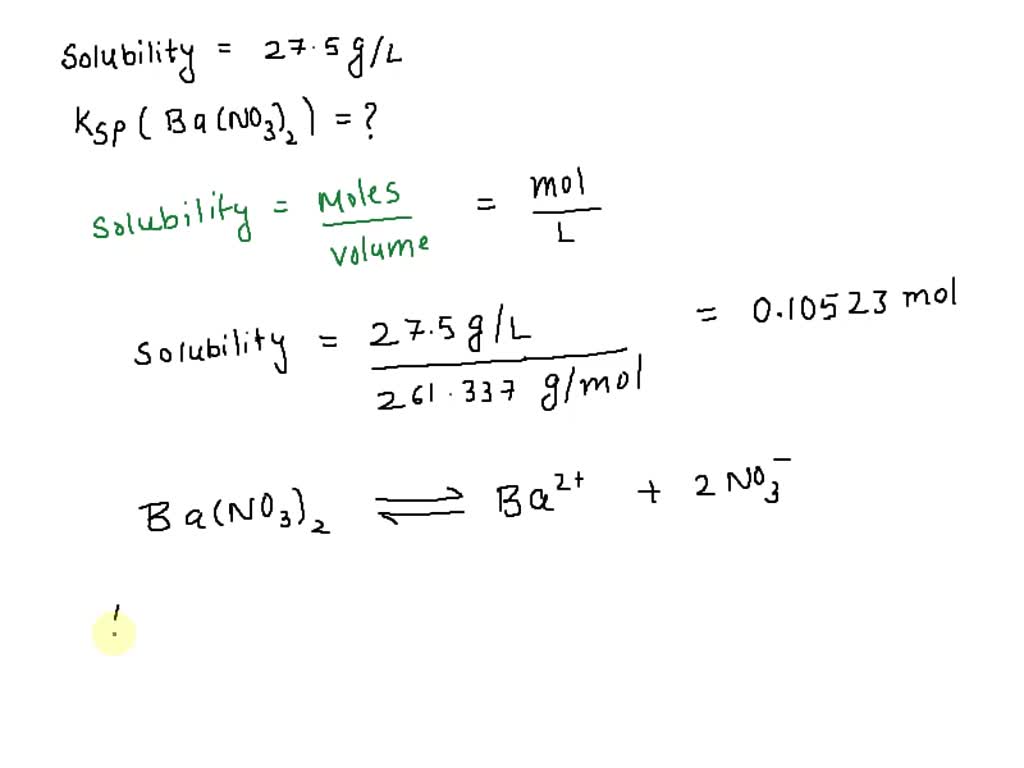 Solubility = 27.5 g/L
Ksp ( Ba(NO3)2 ) = ?
Solubility = Moles / Volume = mol / L
Solubility = 27.5 g/L / 261.337 g/mol = 0.10523 mol
Ba(NO3)2 ⇌ Ba2+ + 2 NO3-